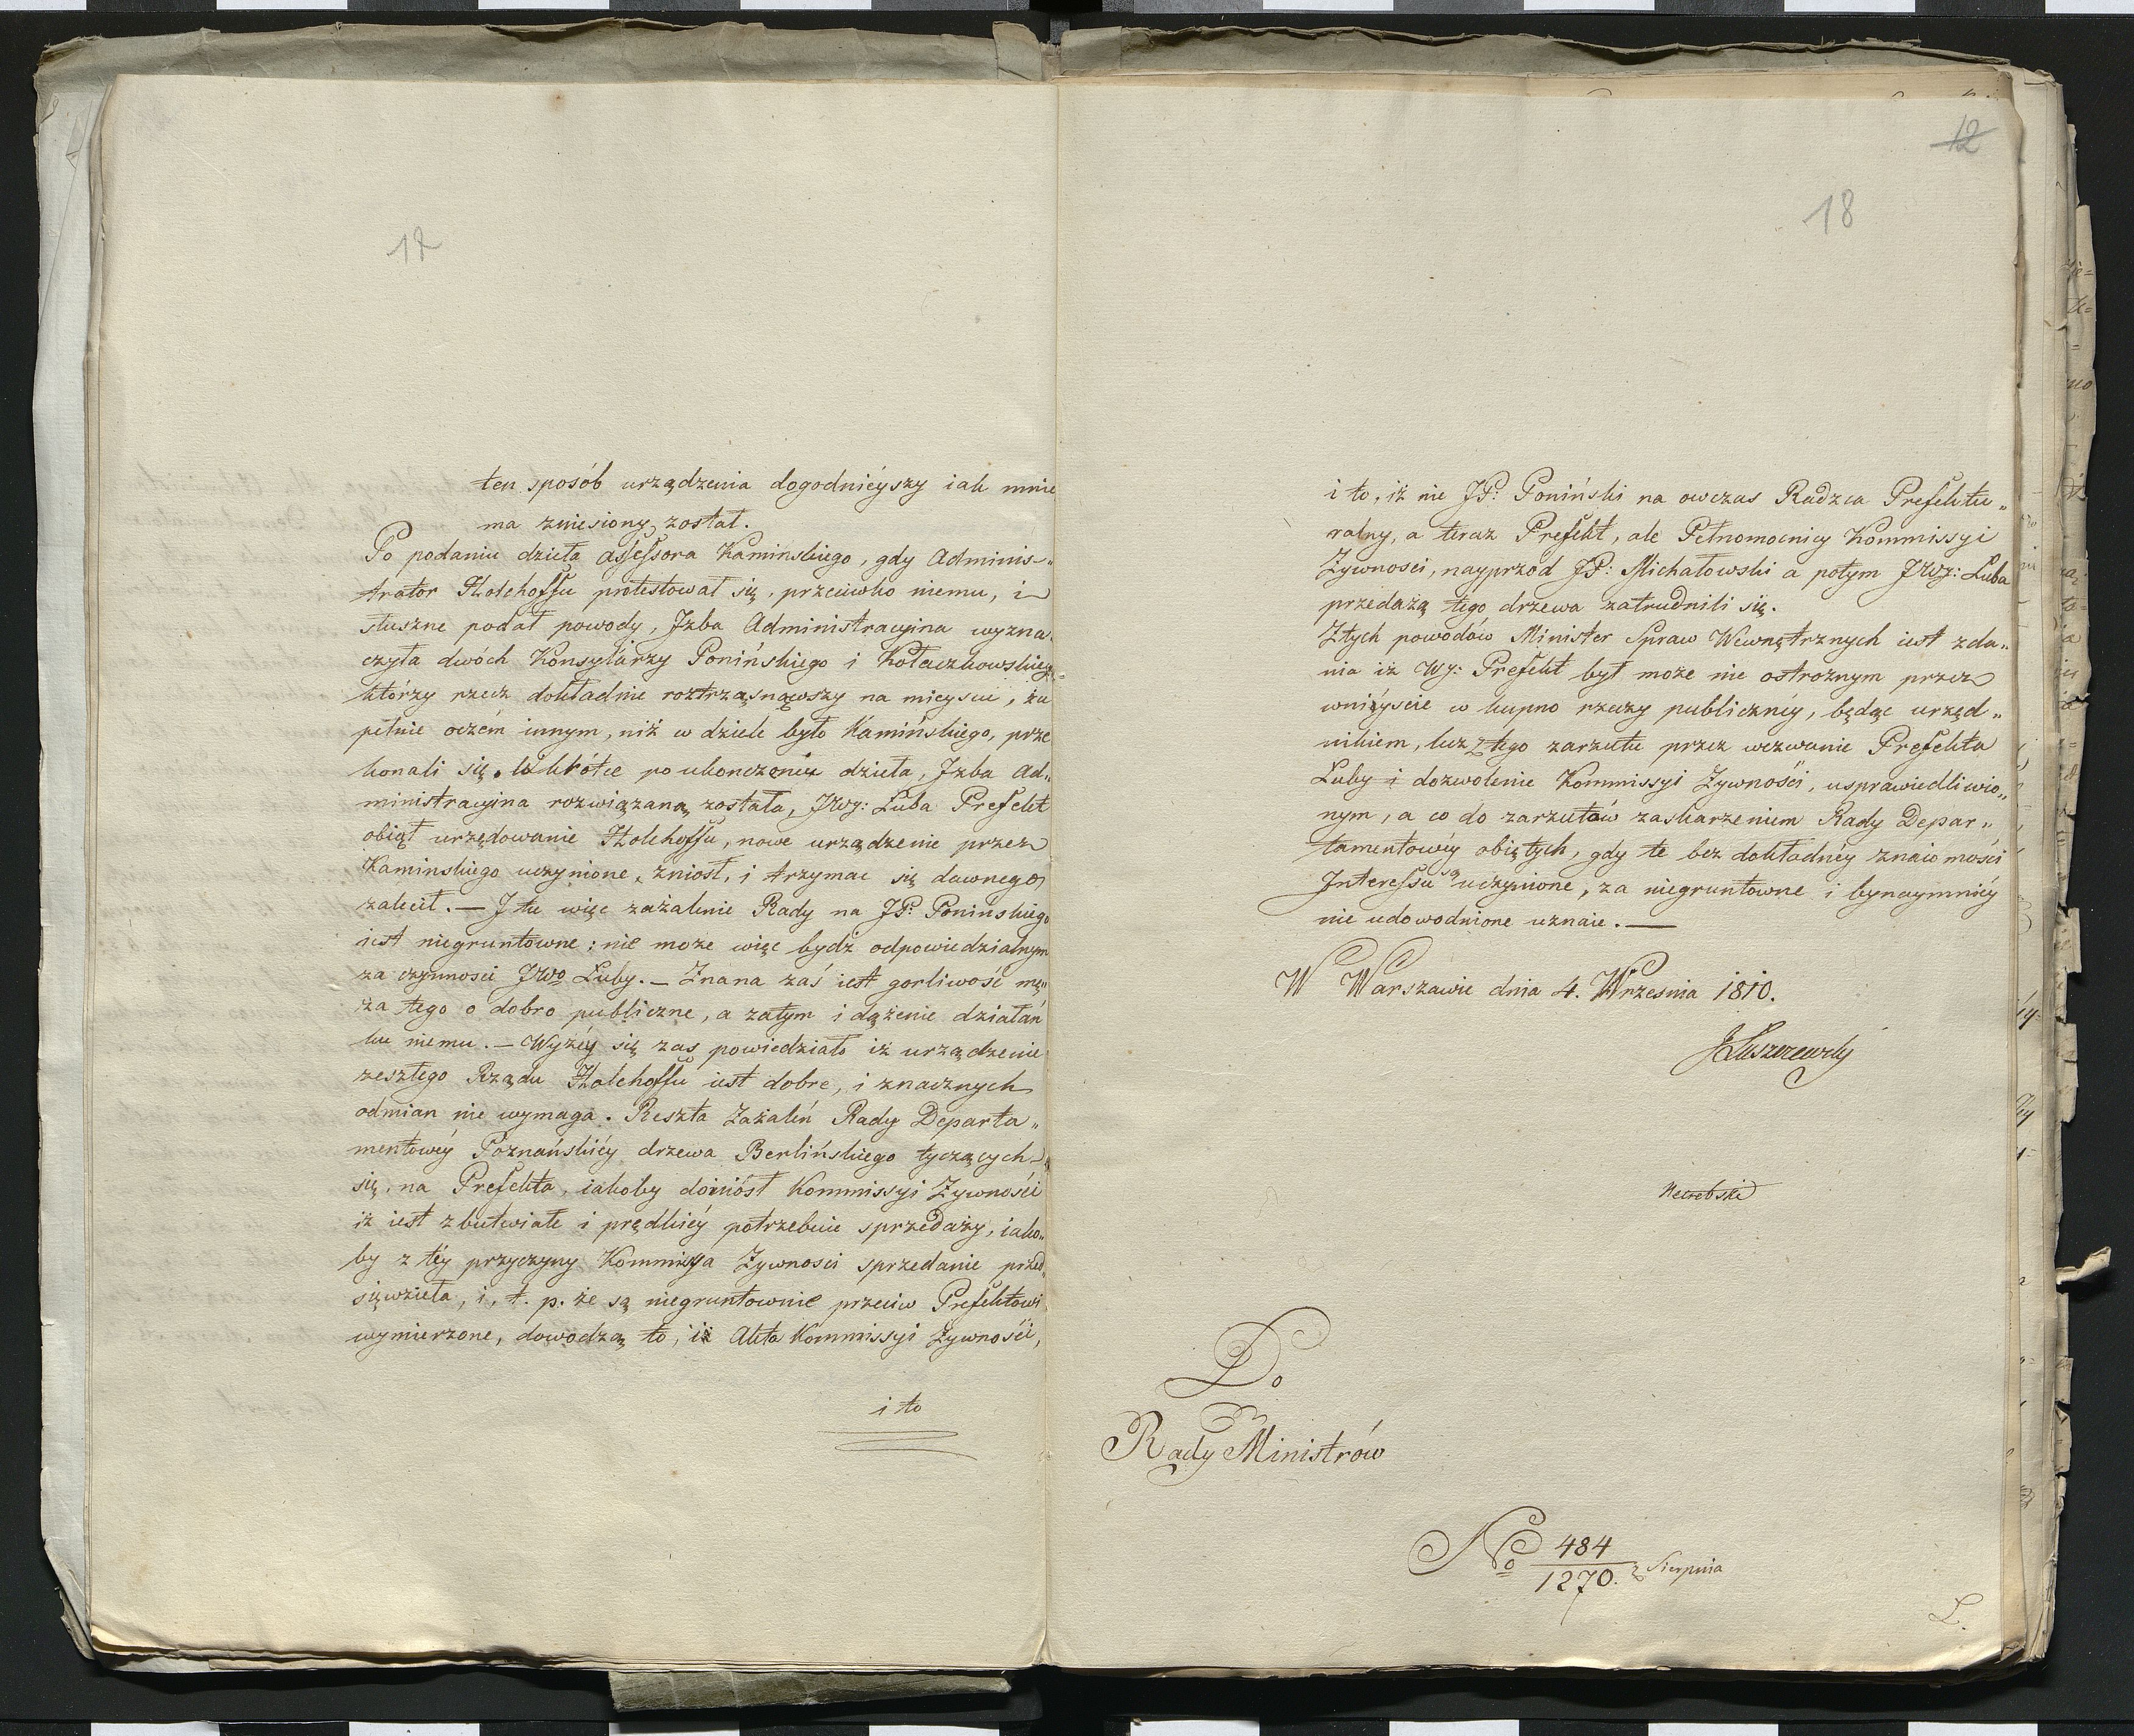 17
ten sposób urządzenia dogodnieyszy iak mnie
ma zniesiony został.
Po podaniu dzieła assessora Kaminskiego, gdy Adminis„
trator Holchoffu protestował się, przeciwko niemu, i
słuszne podał powody, Jzba Administracyina wyzna„
czyła dwóch Konsyliarzy Ponińskiego i Kołaczkowskiego
którzy rzecz dokładnie roztrząsnąwszy na mieyscu, zu
pełnie oczém innym, niż w dziele było Kamińskiego, prze
konali się. Wkrótce po ukonczeniu dzieła, Jzba Ad„
ministracyina rozwiązaną została, JWy: Łuba Prefekt
obiął urzędowanie Holchoffu, nowe urządzenie przez
Kaminskiego uczynione, zniosł, i trzymac się dawnego
zalecił. — J tu więc zażalenie Rady na JP: Poninskiego
iest niegruntowne: nie może więc bydź odpowiedzialnym
za czynnosci JWo Łuby. — Znana zaś iest gorliwość mę„
ża tego o dobro publiczne, a zatym i dążenie działań
ku niemu. — Wyżéy się zas powiedziało iż urządzenie
zeszłego Rządu Holchoffu iest dobre, i znacznych
odmian nie wymaga. Reszta Zażaleń Rady Departa„
mentowéy Poznańskiéy drzewa Berlińskiego tyczących
się, na Prefekta, iakoby doniósł Kommissyi Zywności
iż iest zbutwiałe i prędkiéy potrzebuie sprzedaży, iako„
by z téy przyczyny Kommissya Zywnosci sprzedanie przed„
sięwzieła, i, t. p. że są niegruntownie przeciw Prefektowi
wymierzone, dowodzą to, iż Akta Kommissyi Zywności,
i to
12
18
i to, iż nie JP: Poniński na owczas Radzca Prefektu„
ralny, a teraz Prefekt, ale Pełnomocnicy Kommissyi
Zywnosci, nayprzód JP: Michałowski a potym JWy: Łuba
przedażą tego drzewa zatrudnili się.
Z tych powodów Minister Spraw Wewnętrznych iest zda„
nia iż Wy: Prefekt był może nie ostrożnym przez
wniyście w kupno rzeczy publicznéy, będąc urzęd„
nikiem, lecz z tego zarzutu przez wezwanie Prefekta
Łuby i dozwolenie Kommissyi Zywności, usprawiedliwio„
nym, a co do zarzutów zaskarzeniem Rady Depar„
tamentowéy obiętych, gdy te bez dokładnéy znaiomości
Jnteressu są uczynione, za niegruntowne i bynaymniéy
nie udowodnione uznaie. —
W Warszawie dnia 4. Wrzesnia 1810.
JŁuszczewsky
Do
Rady Ministrów
No 484
1270. z Sierpnia
L.